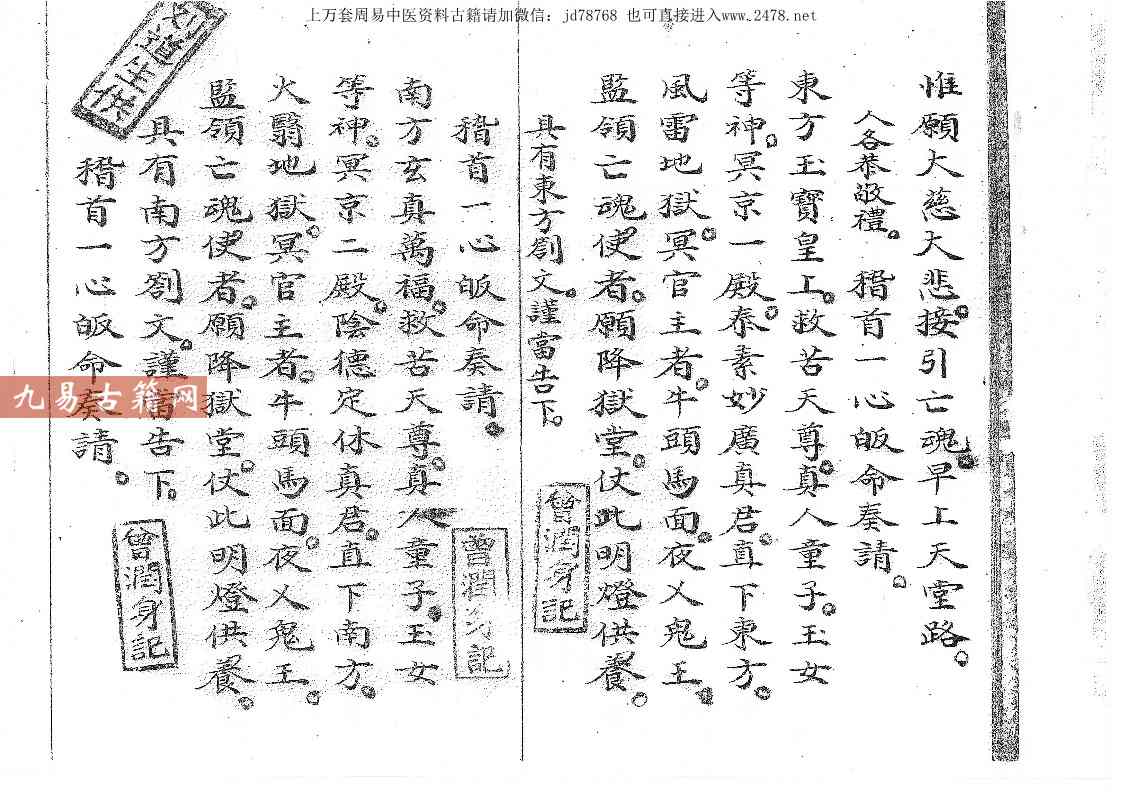 上万套周易中医资料古籍请加微信:jd78768 也可直接进入www.2478.net
惟願大慈大悲。接引亡魂。早上天堂路。
人各恭敬禮。 稽首一心皈命奏請。
東方玉寶皇上。救苦天尊。真人童子。玉女
等神。冥京一殿。泰素妙廣真君。直下東方。
風雷地獄。冥官主者。牛頭馬面。夜乂鬼王。
監領亡魂使者。願降獄堂。仗此明燈供養。
具有東方劄文。謹當告下。
曾潤身記
稽首一心皈命奏請。
曾潤身記
南方玄真萬福。救苦天尊。真人童子。玉女
等神。冥京二殿。陰德定休真君。直下南方。
火翳地獄。冥官主者。牛頭馬面。夜乂鬼王。
監領亡魂使者。願降獄堂。仗此明燈供養。
具有南方劄文。謹當告下。
曾潤身記
稽首一心皈命奏請。
九易古籍网